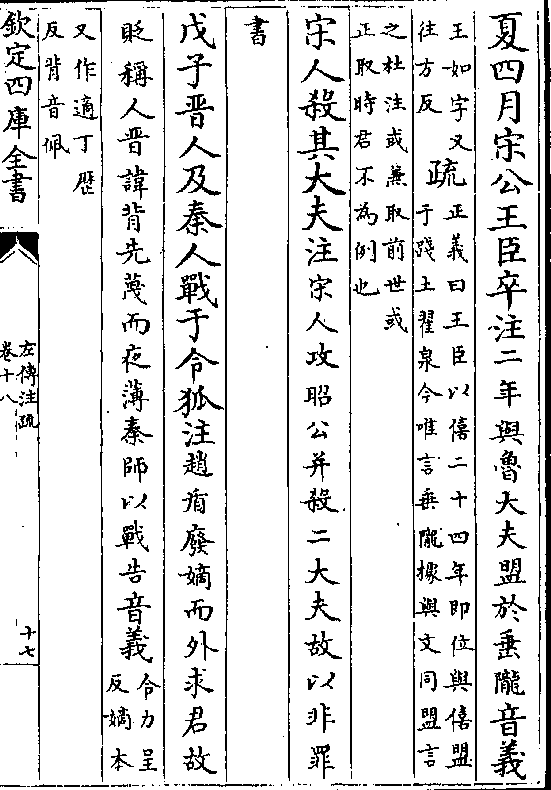 夏四月宋公王臣卒注二年與魯大夫盟於垂隴音義
王如字又
往方反
疏
正義曰王臣以僖二十四年即位與僖盟
于踐土翟泉今唯言垂隴據與文同盟言
之杜注或兼取前世或
正取時君不為例也
宋人殺其大夫注宋人攻昭公并殺二大夫故以非罪
書
戊子晉人及秦人戰于令狐注趙盾廢嫡而外求君故
貶稱人晉諱背先蔑而夜薄秦師以戰告音義
令力呈
反嫡本
又作適丁歴
反背音佩
欽定四庫全書
左傳注疏
卷十八
十七